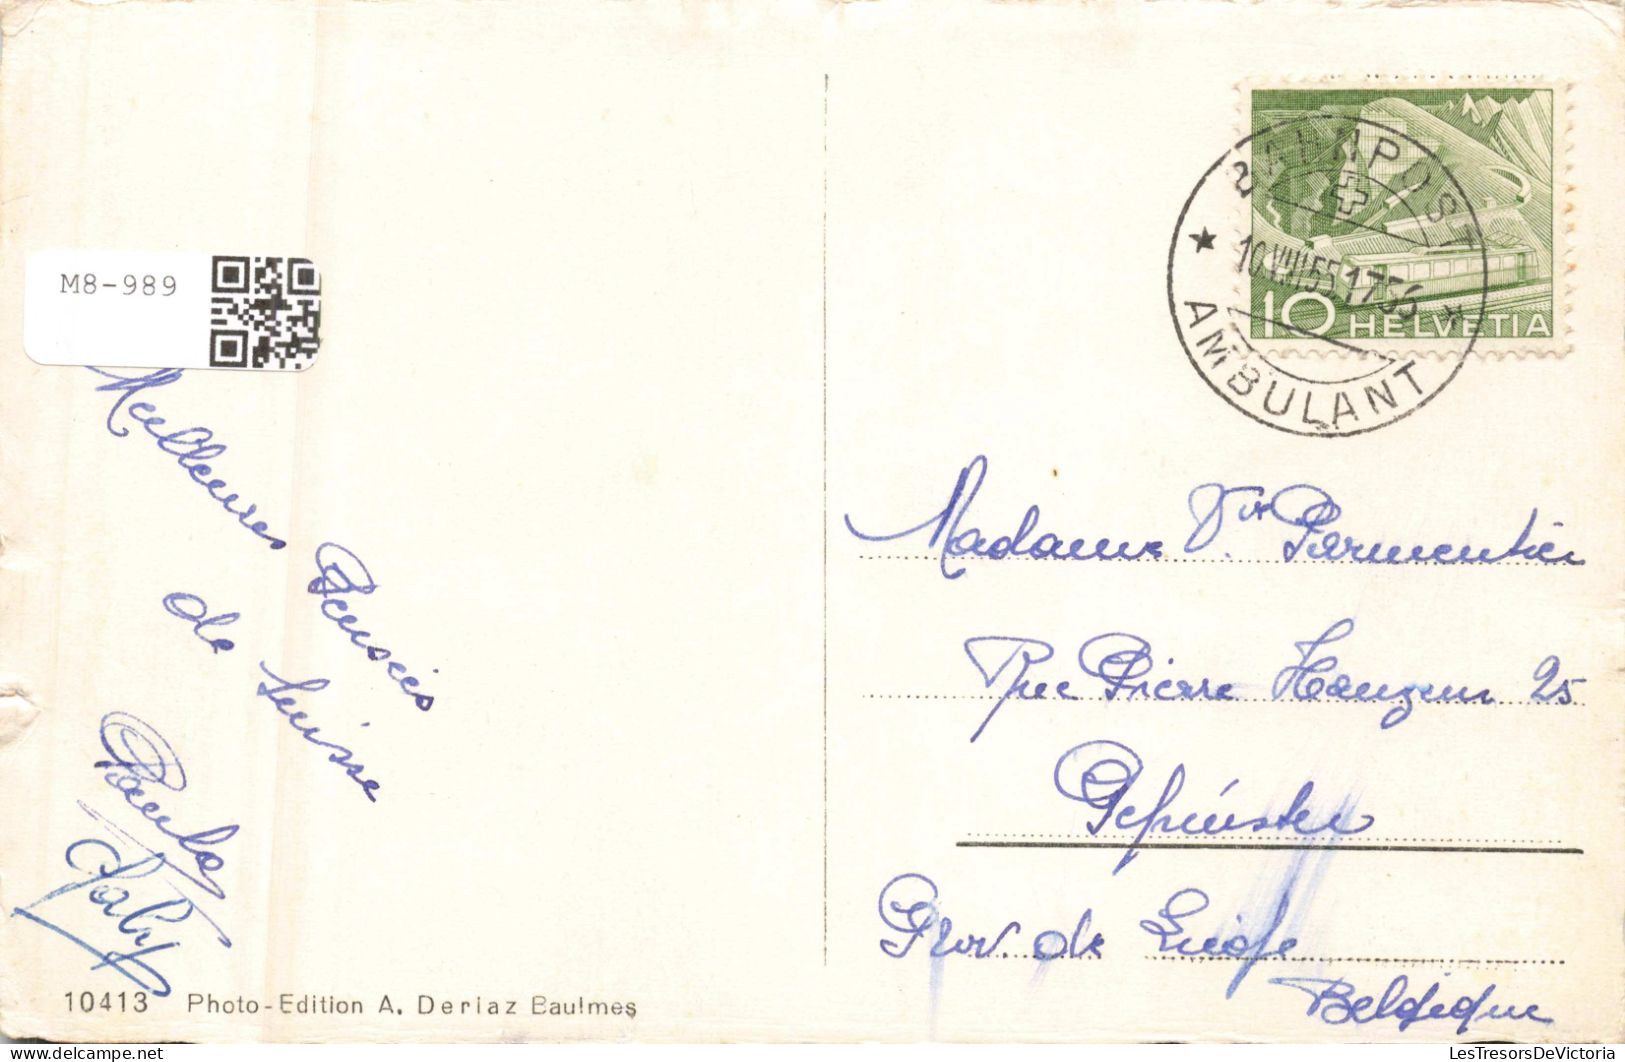 M8-989
Meilleures Pensées
de Suisse
Paula
Gaby
10413 Photo-Edition A. Deriaz Baulmes
BAHNPOST
10.VIII.55 17
AMBULANT
10 HELVETIA
Madame Vve Parmentier
Rue Pierre 25
Pepinster
Prov. de Liège
Belgique
LesTresorsDeVictoria